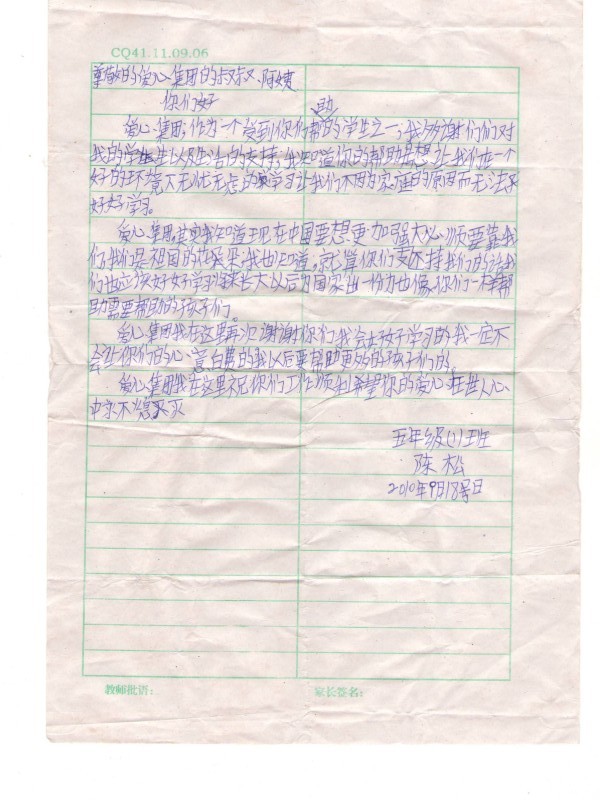 CQ41.11.09.06
尊敬的爱心集团的叔叔、阿姨
你们好
爱心集团:作为一个受到你们帮助的学生之一,我多谢们们对
我的学生以及生活的支持,我知道你的帮助是想让我们在一个
好的环境下无忧无虑的学习让我们不因为家庭的原因而无法
好好学习。
爱心集团其实我知道现在中国要想更加强大必须要靠我
们我们是祖国的未来我也知道,就算你们支持我们的话我
们也应该好好学习,等长大以后为国家出一份力也像你们一样帮
助需要帮助的孩子们。
爱心集团我在这里再次谢谢你们我会好好学习的我一定不
会让你们的心意白费的我以后要帮助更多的孩子们的。
爱心集团我在这里祝你们工作顺利希望你的爱心在世人心
中永不熄灭
五年级(1)班
陈松
2010年9月18号日
教师批语:
家长签名: